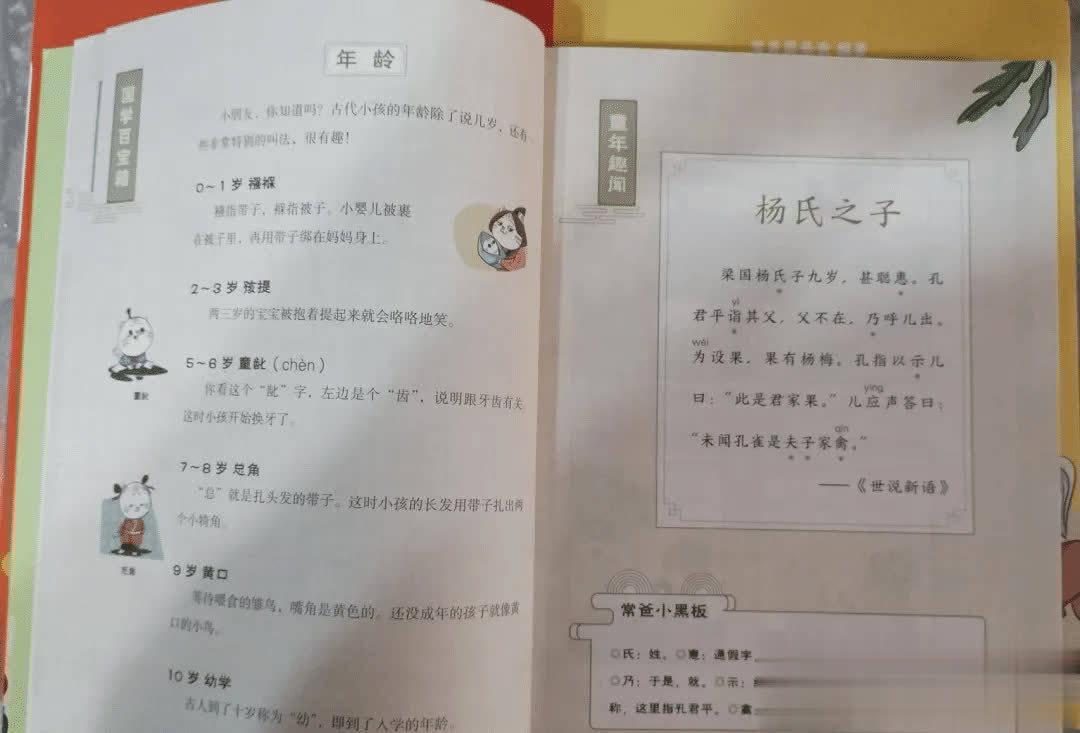 国学百宝箱
年龄
小朋友，你知道吗？古代小孩的年龄除了说几岁，还有
些非常特别的叫法，很有趣！
0～1岁 襁褓
襁指带子，褓指被子。小婴儿被裹
在被子里，再用带子绑在妈妈身上。
2～3岁 孩提
两三岁的宝宝被抱着提起来就会咯咯地笑。
5～6岁 童龀（chèn）
你看这个“龀”字，左边是个“齿”，说明跟牙齿有关，
这时小孩开始换牙了。
童龀
7～8岁 总角
“总”就是扎头发的带子。这时小孩的长发用带子扎出两
个小犄角。
总角
9岁 黄口
等待喂食的雏鸟，嘴角是黄色的。还没成年的孩子就像黄
口的小鸟。
10岁 幼学
古人到了十岁称为“幼”，即到了入学的年龄。
童年趣闻
杨氏之子
梁国杨氏子九岁，甚聪惠。孔
yì
君平诣其父，父不在，乃呼儿出。
wèi
为设果，果有杨梅。孔指以示儿
yìng
曰：“此是君家果。”儿应声答曰：
qín
“未闻孔雀是夫子家禽。”
——《世说新语》
常爸小黑板
◎氏：姓。◎惠：通假字
◎乃：于是，就。◎示：
称，这里指孔君平。◎禽：